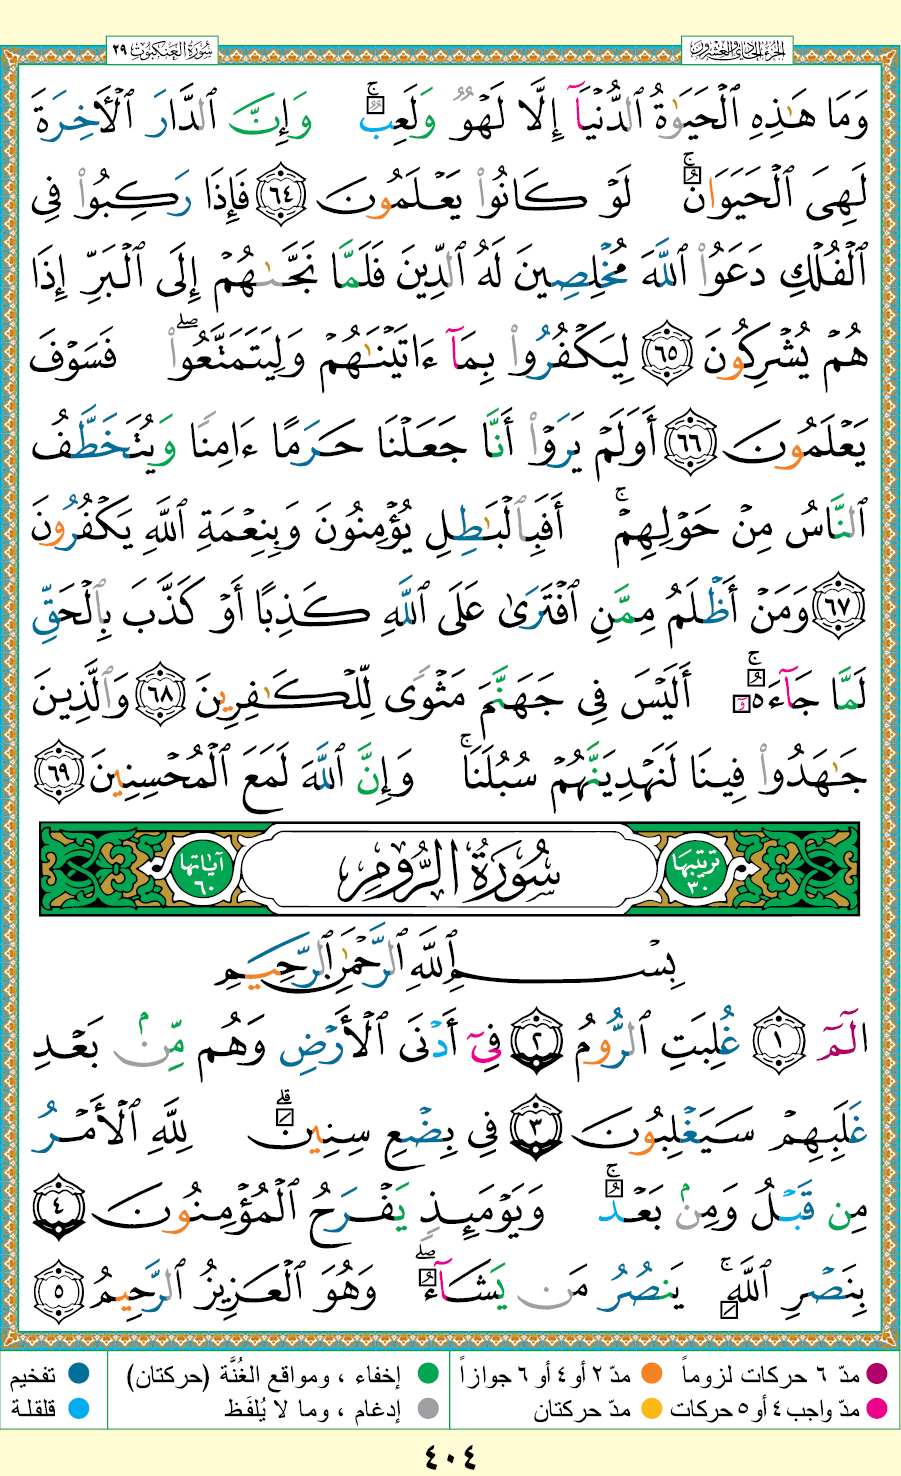 سُورَةُ العَنكَبُوت ٢٩
الجُزءُ الحَادِي وَالعِشرُونَ
وَمَا هَٰذِهِ ٱلْحَيَوٰةُ ٱلدُّنْيَآ إِلَّا لَهْوٌ وَلَعِبٌ ۚ وَإِنَّ ٱلدَّارَ ٱلْأَخِرَةَ
لَهِىَ ٱلْحَيَوَانُ ۚ لَوْ كَانُوا۟ يَعْلَمُونَ ٦٤ فَإِذَا رَكِبُوا۟ فِى
ٱلْفُلْكِ دَعَوُا۟ ٱللَّهَ مُخْلِصِينَ لَهُ ٱلدِّينَ فَلَمَّا نَجَّىٰهُمْ إِلَى ٱلْبَرِّ إِذَا
هُمْ يُشْرِكُونَ ٦٥ لِيَكْفُرُوا۟ بِمَآ ءَاتَيْنَٰهُمْ وَلِيَتَمَتَّعُوا۟ ۖ فَسَوْفَ
يَعْلَمُونَ ٦٦ أَوَلَمْ يَرَوْا۟ أَنَّا جَعَلْنَا حَرَمًا ءَامِنًا وَيُتَخَطَّفُ
ٱلنَّاسُ مِنْ حَوْلِهِمْ ۚ أَفَبِٱلْبَٰطِلِ يُؤْمِنُونَ وَبِنِعْمَةِ ٱللَّهِ يَكْفُرُونَ
٦٧ وَمَنْ أَظْلَمُ مِمَّنِ ٱفْتَرَىٰ عَلَى ٱللَّهِ كَذِبًا أَوْ كَذَّبَ بِٱلْحَقِّ
لَمَّا جَآءَهُۥٓ ۚ أَلَيْسَ فِى جَهَنَّمَ مَثْوًى لِّلْكَٰفِرِينَ ٦٨ وَٱلَّذِينَ
جَٰهَدُوا۟ فِينَا لَنَهْدِيَنَّهُمْ سُبُلَنَا ۚ وَإِنَّ ٱللَّهَ لَمَعَ ٱلْمُحْسِنِينَ ٦٩
ترتيبها ٣٠
سُورَةُ الرُّومِ
آياتها ٦٠
بِسْمِ ٱللَّهِ ٱلرَّحْمَٰنِ ٱلرَّحِيمِ
الٓمٓ ١ غُلِبَتِ ٱلرُّومُ ٢ فِىٓ أَدْنَى ٱلْأَرْضِ وَهُم مِّنۢ بَعْدِ
غَلَبِهِمْ سَيَغْلِبُونَ ٣ فِى بِضْعِ سِنِينَ ۗ لِلَّهِ ٱلْأَمْرُ
مِن قَبْلُ وَمِنۢ بَعْدُ ۚ وَيَوْمَئِذٍ يَفْرَحُ ٱلْمُؤْمِنُونَ ٤
بِنَصْرِ ٱللَّهِ ۚ يَنصُرُ مَن يَشَآءُ ۖ وَهُوَ ٱلْعَزِيزُ ٱلرَّحِيمُ ٥
مدّ ٦ حركات لزوماً
مدّ ٢ أو ٤ أو ٦ جوازاً
إخفاء ، ومواقع الغُنَّة (حركتان)
تفخيم
مدّ واجب ٤ أو ٥ حركات
مدّ حركتان
إدغام ، وما لا يُلفَظ
قلقلة
٤٠٤